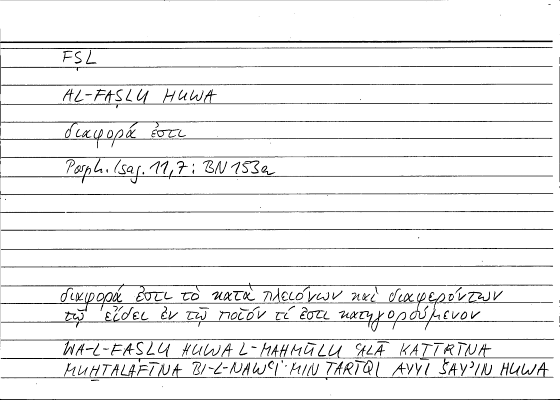 FṢL
AL-FAṢLU HUWA
διαφορά ἐστι
Porph. Isag. 11,7: BN 153a
διαφορά ἐστι τὸ κατὰ πλειόνων καὶ διαφερόντων
τῷ εἴδει ἐν τῷ ποῖόν τί ἐστι κατηγορούμενον
WA-L-FAṢLU HUWA L-MAḤMŪLU ʿALĀ KAṮĪRĪNA
MUḪTALAFĪNA BI-L-NAWʿI MIN ṬARĪQI AYYI ŠAYʾIN HUWA